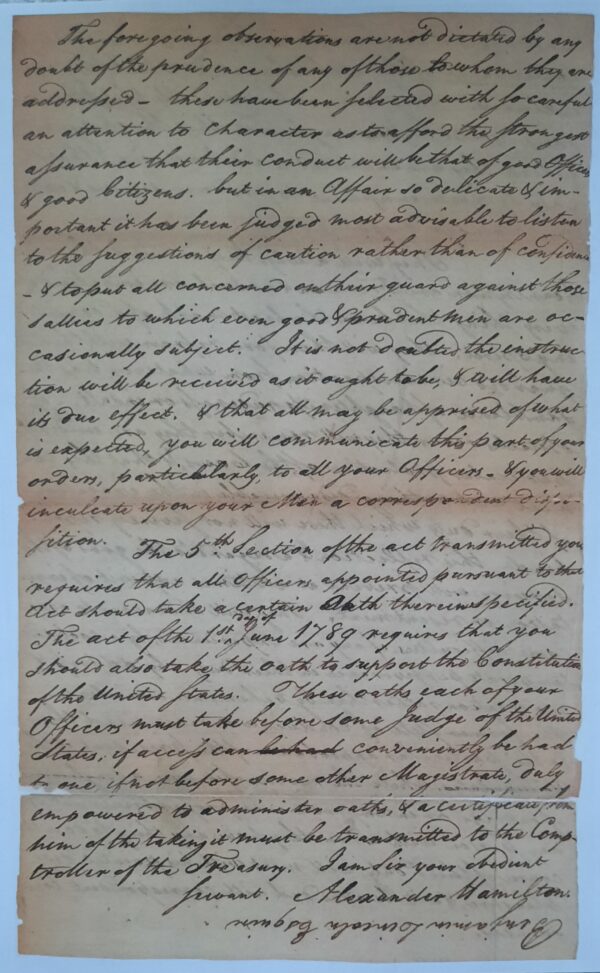 The foregoing observations are not dictated by any
doubt of the prudence of any of those to whom they are
addressed – these have been selected with so careful
an attention to character as to afford the strongest
assurance that their conduct will be that of good Officers
& good Citizens. but in an Affair so delicate & im-
portant it has been judged most advisable to listen
to the suggestions of caution rather than of confidence
– & to put all concerned on their guard against those
sallies to which even good & prudent men are oc-
casionally subject. It is not doubted the instruc
tion will be received as it ought to be, & will have
its due effect. & that all may be apprised of what
is expected, you will communicate this part of your
orders, particularly, to all your Officers – & you will
inculcate upon your Men a correspondent dispo-
sition. The 5th. Section of the act transmitted you
requires that all Officers appointed pursuant to that
Act should take a certain Oath therein specified.
The act of the 1st. day of June 1789 requires that you
should also take the oath to support the Constitution
of the United States. These oaths each of your
Officers must take before some Judge of the United
States, if access can be had conveniently be had
to one, if not before some other Magistrate, duly
empowered to administer oaths, & a certificate from
him of the taking it must be transmitted to the Comp-
troller of the Treasury. I am Sir your obedient
servant. Alexander Hamilton.